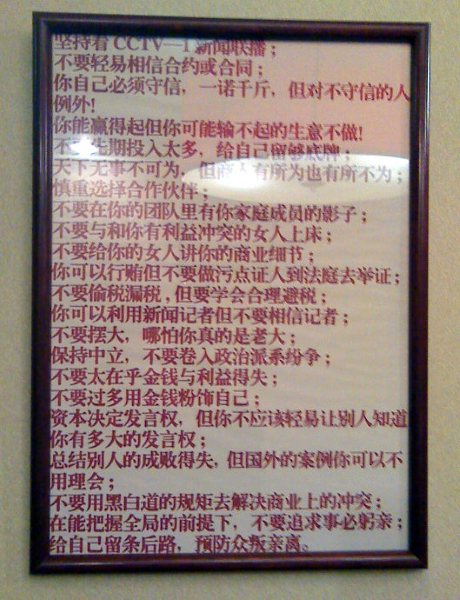 坚持看CCTV—1新闻联播；
不要轻易相信合约或合同；
你自己必须守信，一诺千斤，但对不守信的人
例外!
你能赢得起但你可能输不起的生意不做!
不 先期投入太多，给自己留够底牌；
天下无事不可为，但商人有所为也有所不为；
慎重选择合作伙伴；
不要在你的团队里有你家庭成员的影子；
不要与和你有利益冲突的女人上床；
不要给你的女人讲你的商业细节；
你可以行贿但不要做污点证人到法庭去举证；
不要偷税漏税,但要学会合理避税；
你可以利用新闻记者但不要相信记者；
不要摆大，哪怕你真的是老大；
保持中立，不要卷入政治派系纷争；
不要太在乎金钱与利益得失；
不要过多用金钱粉饰自己；
资本决定发言权，但你不应该轻易让别人知道
你有多大的发言权；
总结别人的成败得失,但国外的案例你可以不
用理会；
不要用黑白道的规矩去解决商业上的冲突；
在能把握全局的前提下，不要追求事必躬亲；
给自己留条后路，预防众叛亲离。